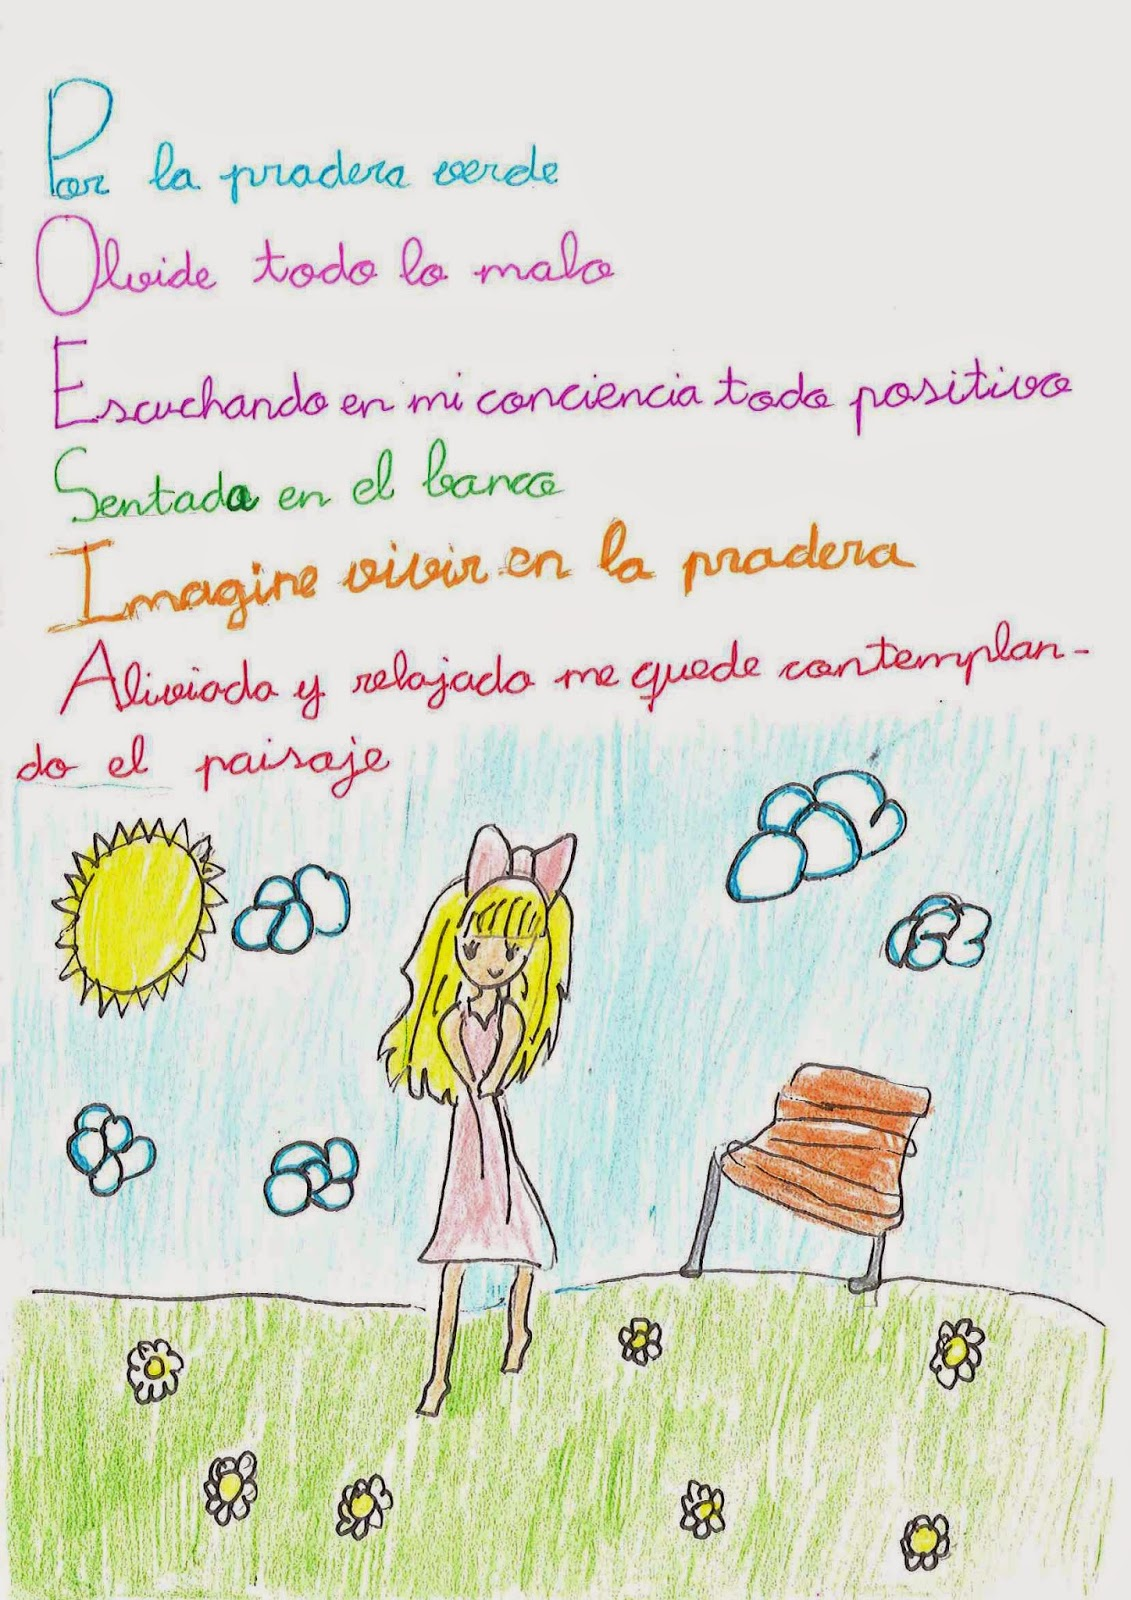 Por la pradera verde
Olvide todo lo malo
Escuchando en mi conciencia todo positivo
Sentada en el banco
Imagine vivir en la pradera
Aliviada y relajada me quede contemplan-
do el paisaje